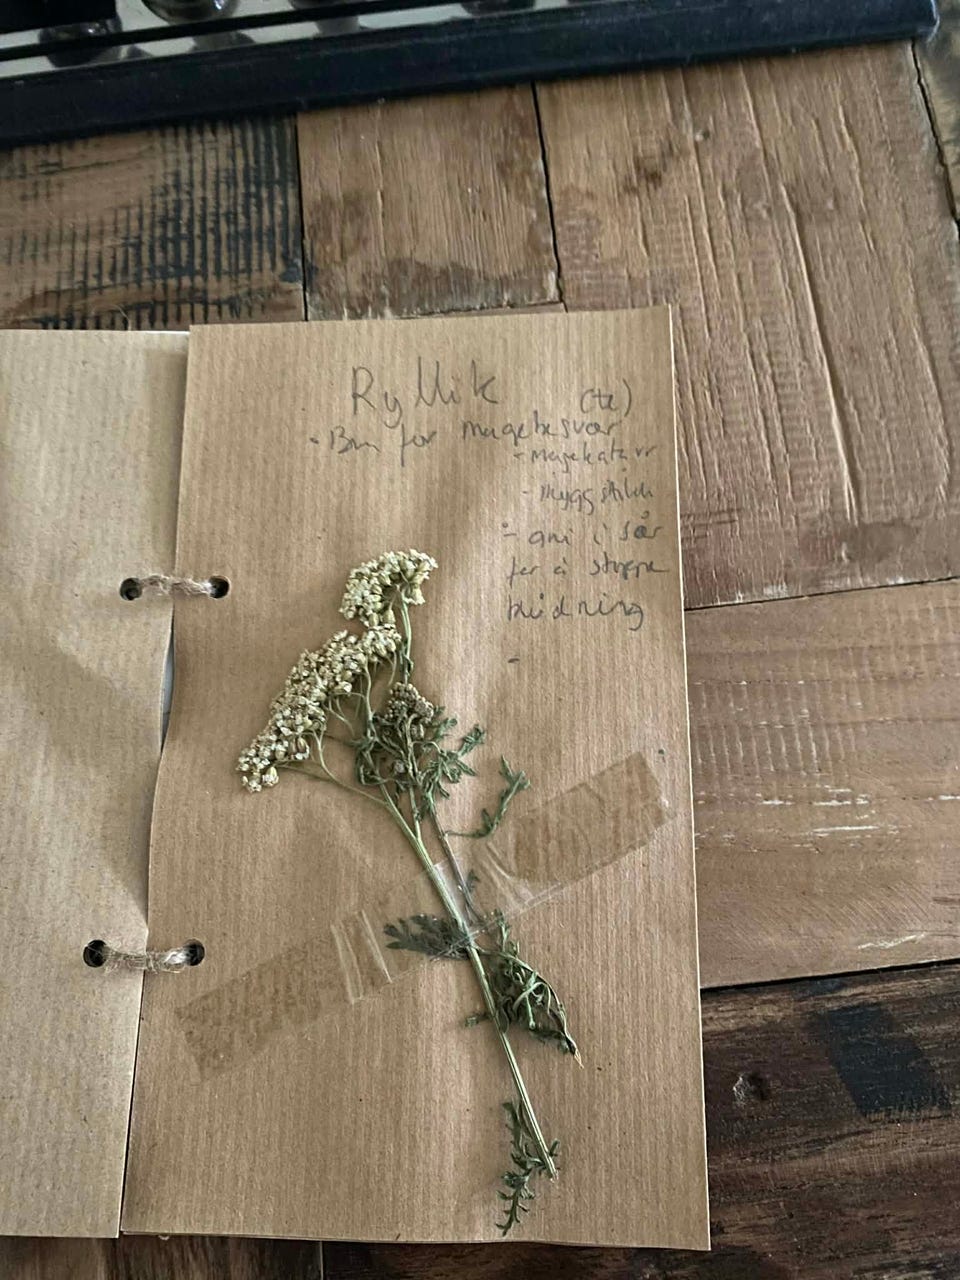 Ryllik
(te)
• Bra for magebesvær
- magekatarr
- myggstikk
- gni i sår
for å stoppe
blødning
-